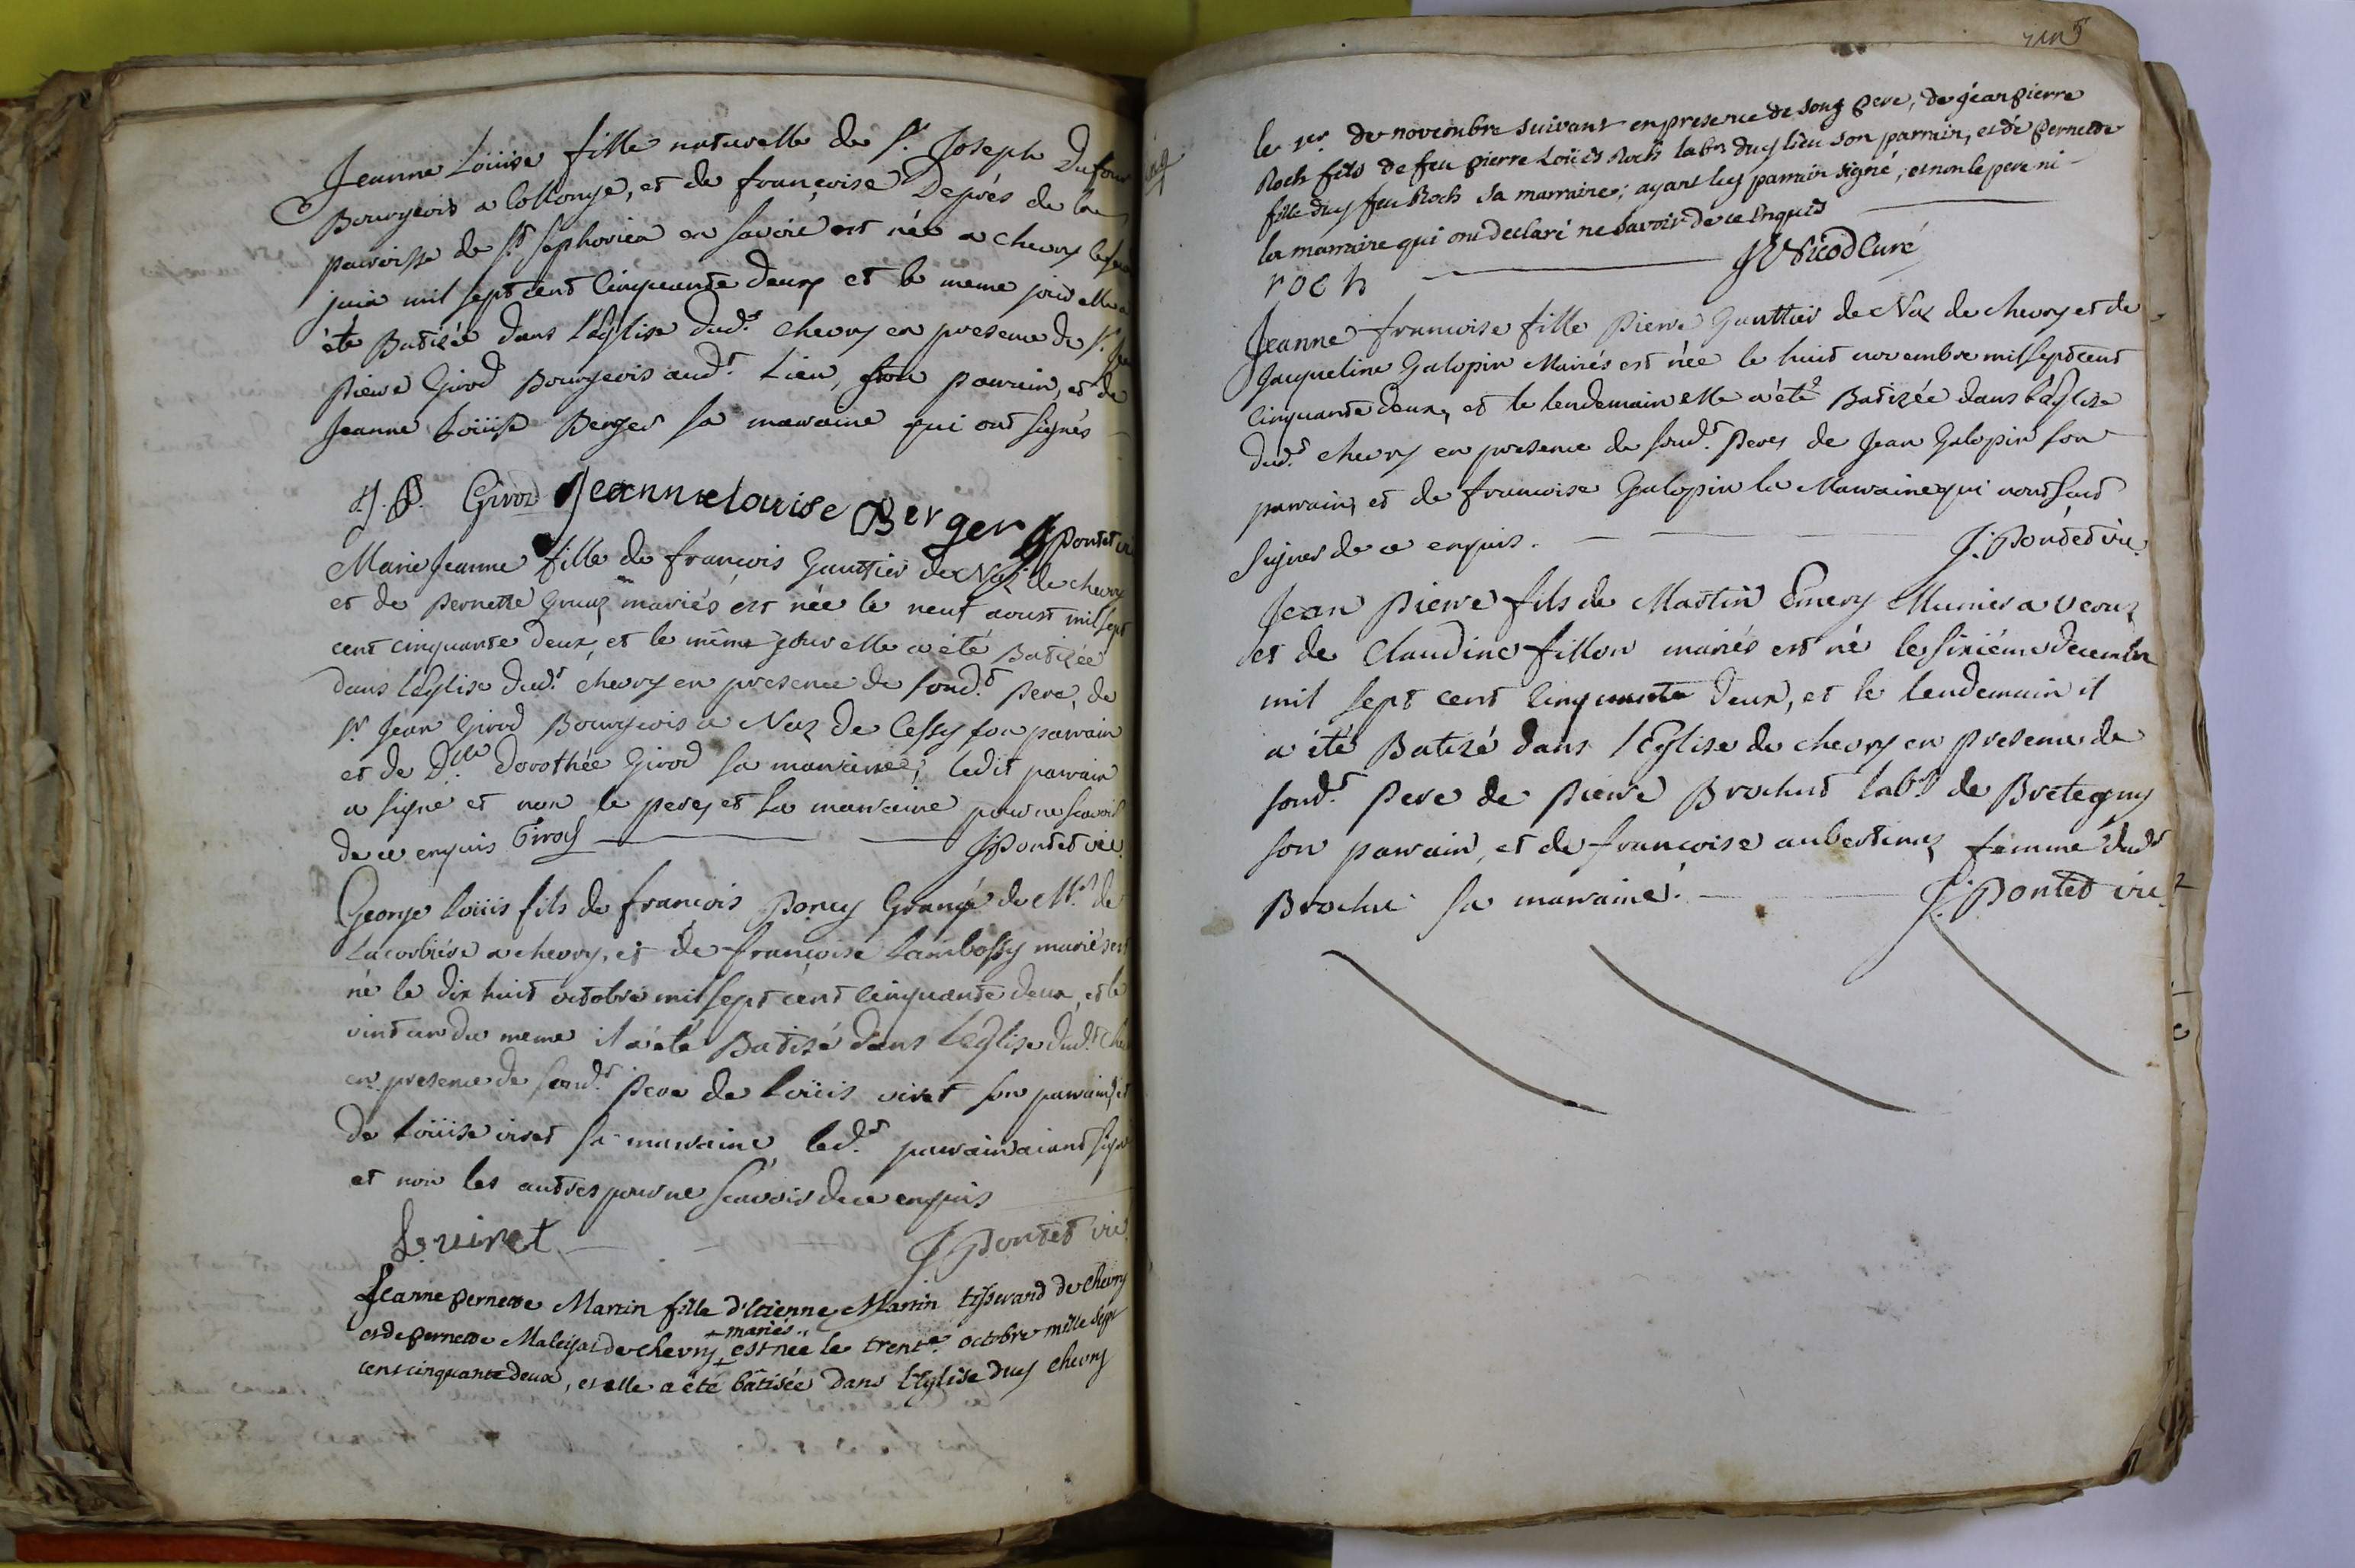 Jeanne Loüise fille naturelle de Sr. Joseph Dufour
Bourgeois a Collonge, et de françoise Deprés de la
paroisse de St. Sephorien en Savoie est née a chevry le
juin mil sept cent Cinquante deux et le meme jour elle a
été Batizée dans l'Eglise dudt. chevry en presence de Sr.
Pierre Girod Bourgeois audt. Lieu, son parrain, et de
Jeanne Loüise Berger sa marraine qui ont signés
J. P. Girod Jeannelouise Berger J Pontet vic
Marie Jeanne fille de françois Gauttier de Naz de chevry
et de Pernette Gruaz mariés est née le neuf aoust mil sept
cent cinquante deux, et le même jour elle a été Batizée
dans l'Eglise dudt. chevry en presence de sondt. Pere, de
Sr. Jean Girod Bourgeois a Naz de Cessy son parrain
et de Dlle Dorothée Girod sa marraine; ledit parrain
a signé et non le pere, et la marraine pour ne scavoir
de ce enquis Girod J Pontet vic.
George Loüis fils de françois Poncy Grangé de Mr. de
Lacorbiére a chevry, et de françoise Lambossy mariés est
né le dix huit octobre mil sept cent cinquante deux, et le
vint un du meme il a été Batizé dans l'Eglise dudt. che
en presence de sondt. Pere de Loüis viret son parrain, et
de Loüise viret sa marraine ledt. parrain aiant signé
et non les autres pour ne scavoir de ce enquis
L. viret J Pontet vic.
Jeanne pernette Martin fille d'Etienne Martin tisserand de chevry
et de pernette de chevry + est née le trente octobre mille sept
+ mariés
cent cinquante deux, et elle a été bâtisée dans l'Eglise dud chevry
le 1er. de novembre suivant en presence de son pere, de jean pierre
Roch fils de feu pierre Loüis Roch labr. dud lieu son parrain, et de pernette
fille dud feu Roch sa marraine; ayant led parrain signé, et non le pere ni
la marraine qui ont declaré ne savoir de ce enquis
roch Nicod Curé
Jeanne francoise fille Pierre Gauttier de Naz de chevry et de
Jacqueline Galopin Mariés est née le huit novembre mil sept cent
Cinquante deux, et le lendemain elle a été Batizée dans l'Eglise
dudt. chevry en presence de sondt. Pere, de Jean Galopin son
parrain, et de francoise Galopin la Marraine qui n'ont sceu
signer de ce enquis. J. Pontet vic.
Jean Pierre fils de Martin Emery Munier a veraz
et de Claudine fillon mariés est né le sixiéme decembre
mil sept cent Cinquante deux, et le lendemain il
a été Batizé dans l'Eglise de chevry en presence de
sondt. Pere de Pierre Brochut labr. de Bretegny
son parrain, et de francoise femme dudt
Brochu sa marraine. J. Pontet vic.